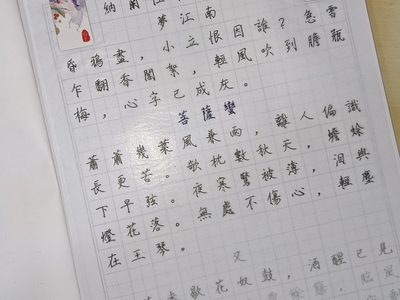 納蘭
夢江南
昏鴉盡,小立恨因誰?急雪
乍翻香閣絮,輕風吹到膽瓶
梅,心字已成灰。
菩薩蠻
蕭蕭幾葉風兼雨,離人偏識
長更苦。欹枕數秋天,蟾蜍
下早弦。夜寒驚被薄,淚與
燈花落。無處不傷心,輕塵
在玉琴。
又
未歇花奴鼓,酒醒已見
臨風